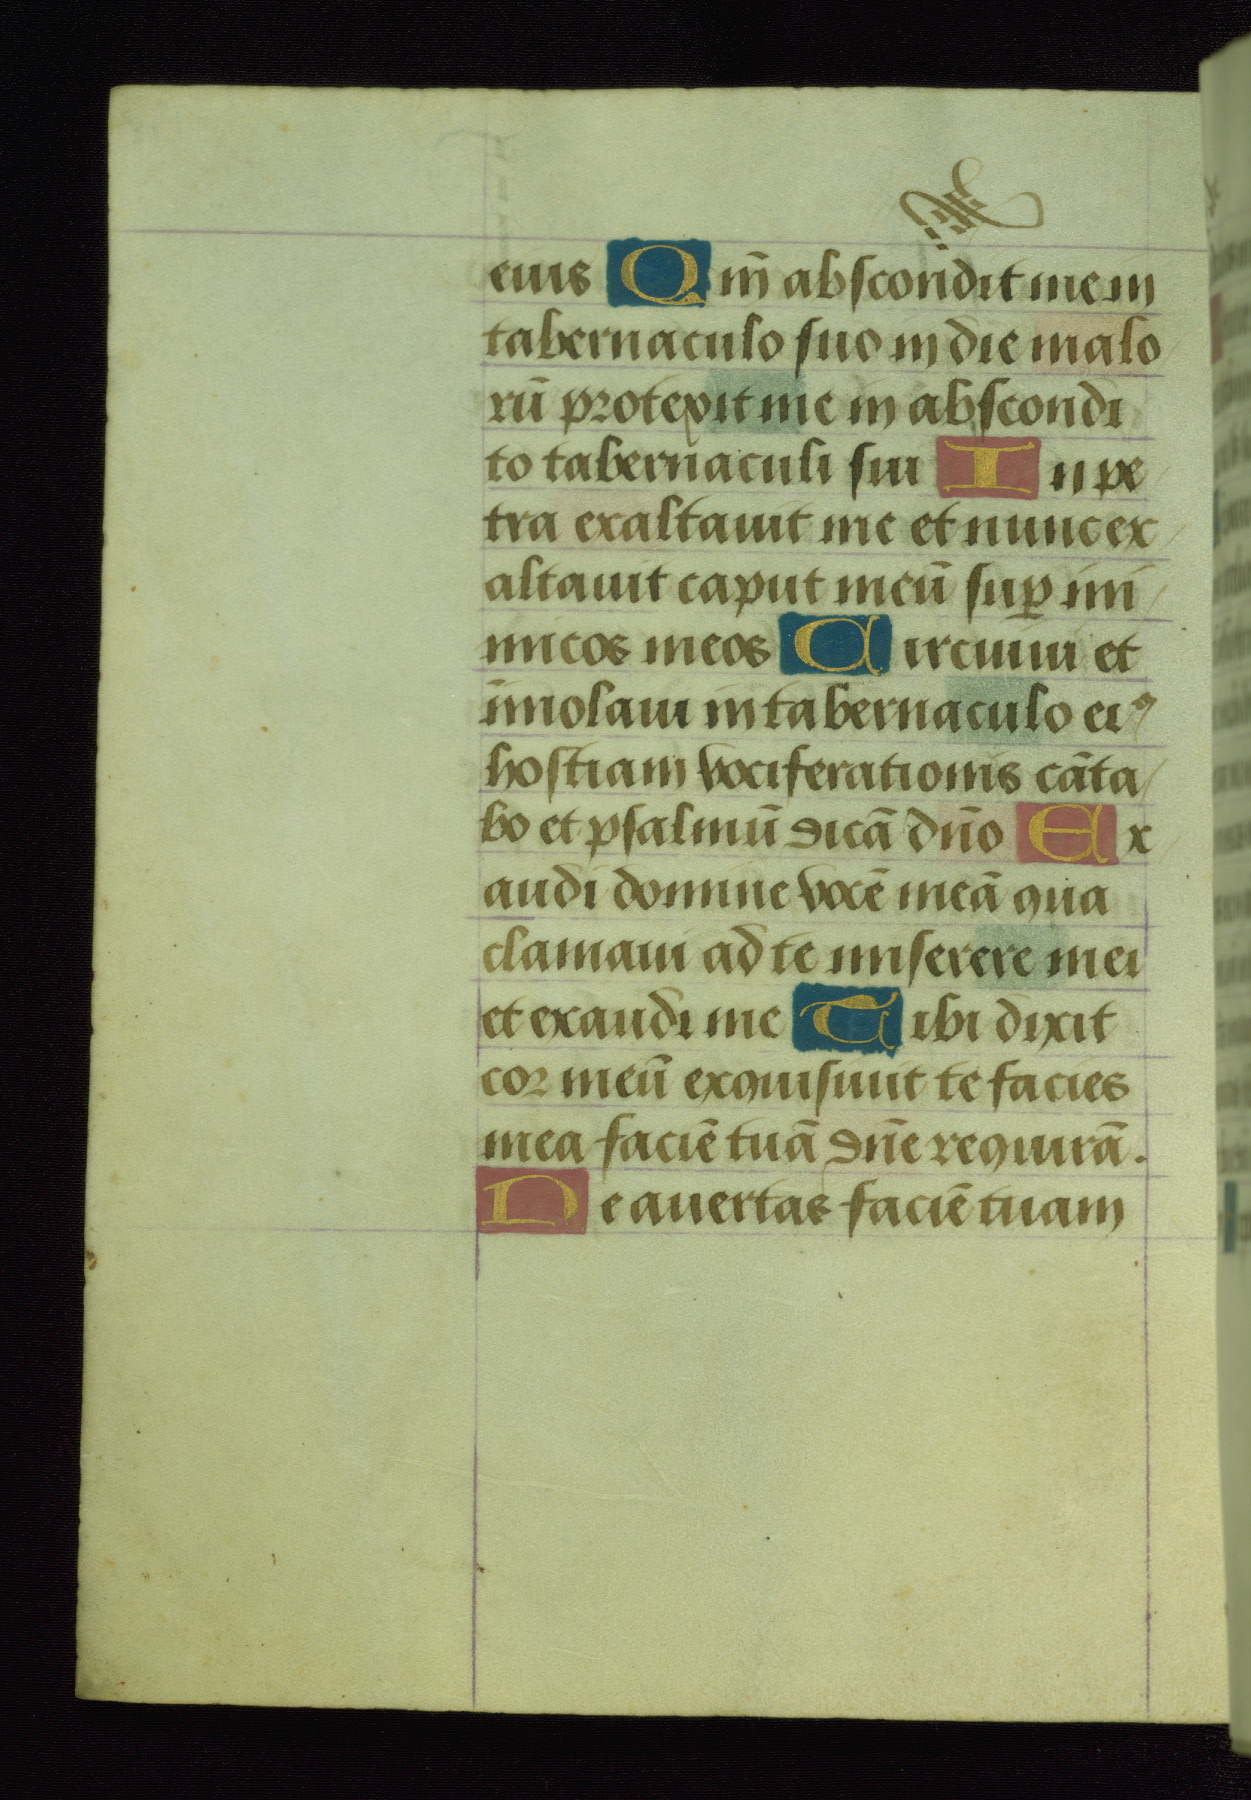 eius Qm̄ abscondit me in
tabernaculo suo in die malo
rū protexit me in abscondi
to tabernaculi sui In pe
tra exaltauit me et nunc ex
altauit caput meū suꝑ ini
micos meos Circuiui et
īmolaui in tabernaculo eiꝰ
hostiam vociferationis cāta
bo et psalmū dicā dn̄o Ex
audi domine vocē meā qua
clamaui ad te miserere mei
et exaudi me Tibi dixit
cor meū exquisiuit te facies
mea faciē tuā dn̄e requirā.
Ne auertas faciē tuam